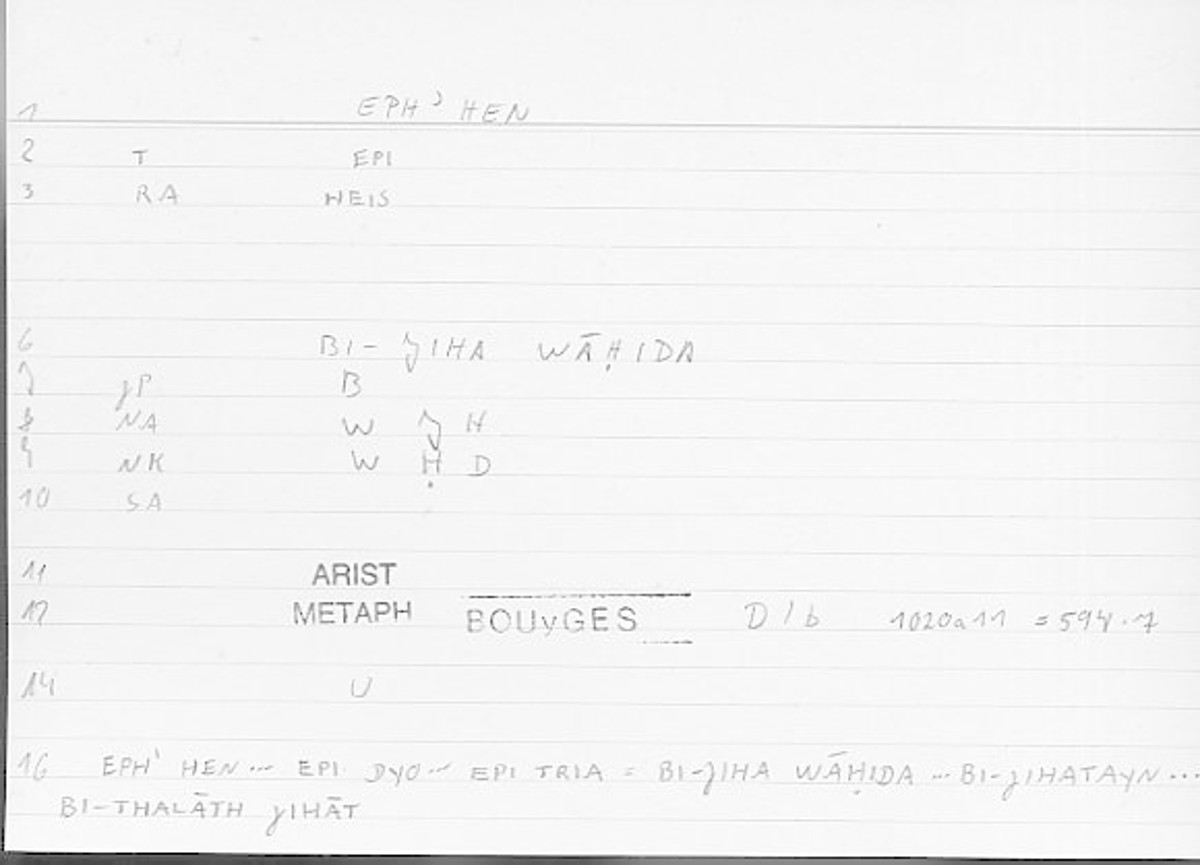 1 EPH' HEN
2 T EPI
3 RA HEIS
6 BI-JIHA WĀḤIDA
7 JP B
8 NA W J H
9 NK W Ḥ D
10 SA
11 ARIST
12 METAPH BOUyGES D/b 1020a11 = 594.7
14 U
16 EPH' HEN ... EPI DYO ... EPI TRIA = BI-JIHA WĀḤIDA ... BI-JIHATAYN ...
BI-THALĀTH JIHĀT